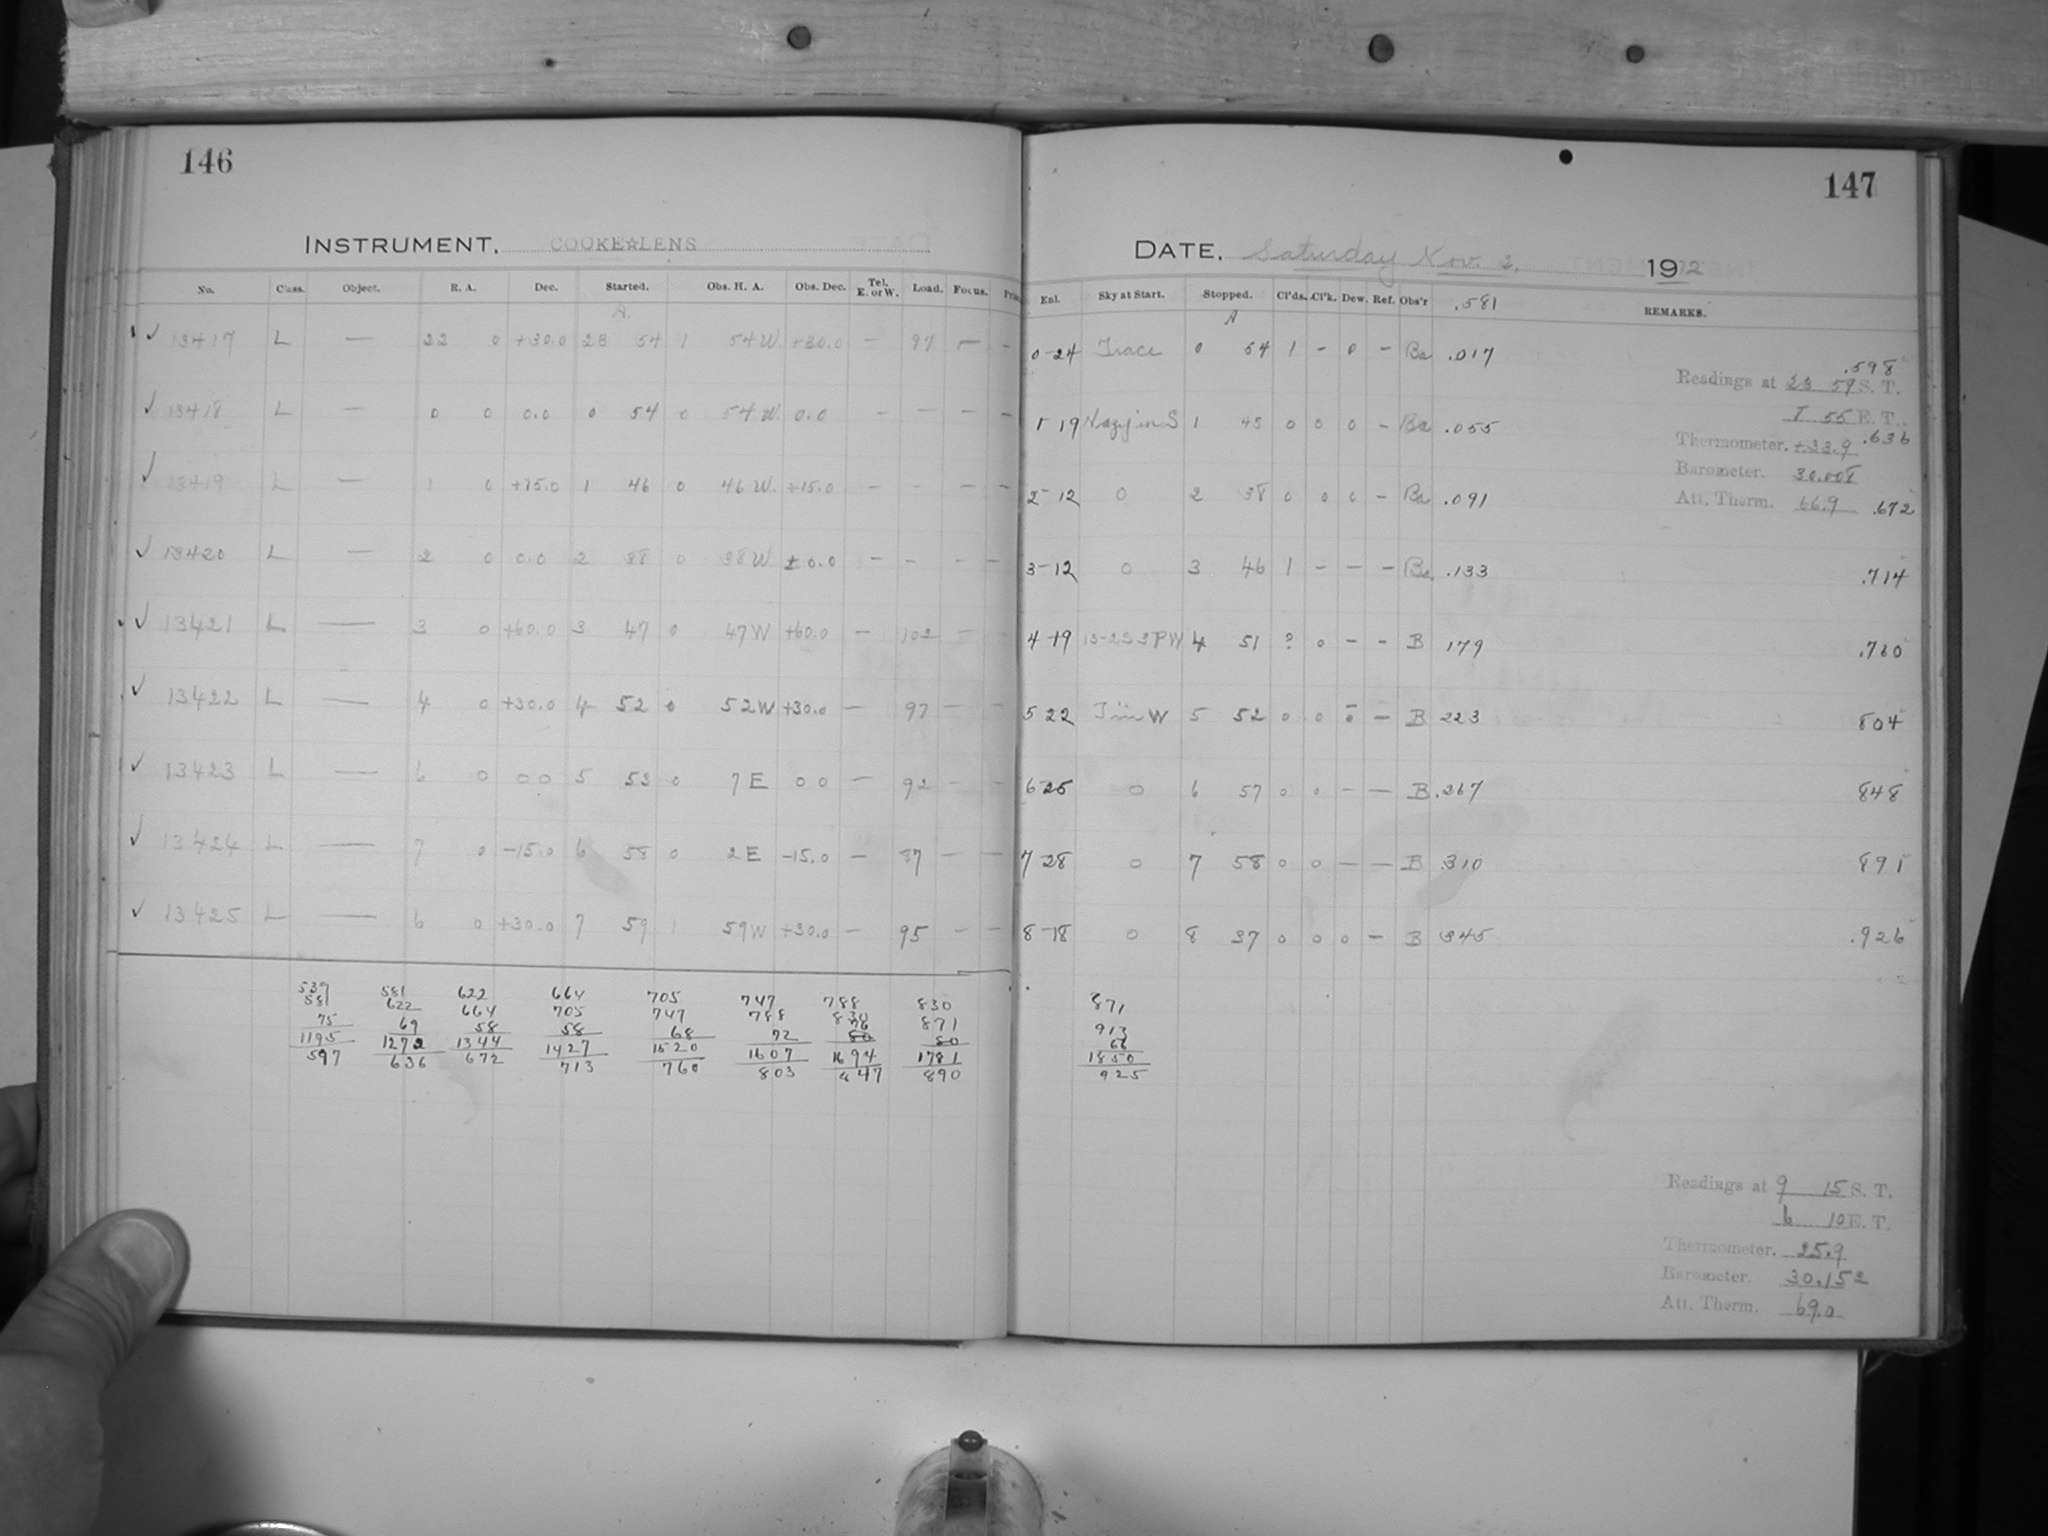 146
INSTRUMENT, COOKE☆LENS
No. Class. Object. R. A. Dec. Started. Obs. H. A. Obs. Dec. Tel. E. or W. Load. Focus.
A.
✓ 13417 L — 22 0 +30.0 23 54 1 54 W. +30.0 — 97 — —
✓ 13418 L — 0 0 0.0 0 54 0 54 W 0.0 — — — —
✓ 13419 L — 1 0 +15.0 1 46 0 46 W. +15.0 — — — —
✓ 13420 L — 2 0 0.0 2 38 0 38 W ±0.0 — — — —
✓ 13421 L — 3 0 +60.0 3 47 0 47 W +60.0 — 102 — —
✓ 13422 L — 4 0 +30.0 4 52 0 52 W +30.0 — 97 — —
✓ 13423 L — 6 0 0 0 5 53 0 7 E 0 0 — 92 — —
✓ 13424 L — 7 0 -15.0 6 58 0 2 E -15.0 — 87 — —
✓ 13425 L — 6 0 +30.0 7 59 1 59 W +30.0 — 95 — —
539 581 622 664 705 747 788 830
581 622 664 705 747 788 830 871
75 69 58 58 68 72 76 50
1195 1272 1344 1427 1520 1607 1694 1781
597 636 672 713 760 803 847 890
147
DATE, Saturday Nov. 2, 1912
Exl. Sky at Start. Stopped. Cl'ds. Cl'k. Dew. Ref. Obs'r .581 REMARKS.
A
0-24 Trace 0 54 1 — 0 — Ba .017 .598
Readings at 23 59 S. T.
55 E. T.
1 19 Hazy in S 1 45 0 0 0 — Ba .055 .636
Thermometer. +33.9
Barometer. 30.008
Att. Therm. 66.9
2-12 0 2 38 0 0 0 — Ba .091 .672
3-12 0 3 46 1 — — — Ba .133 .714
4 19 4 51 ? 0 — — B 179 .760
5 22 W 5 52 0 0 0 — B 223 804
6 25 0 6 57 0 0 — — B .267 848
7 28 0 7 58 0 0 — — B 310 891
8-18 0 8 37 0 0 0 — B 345 .926
871
913
66
1850
925
Readings at 9 15 S. T.
6 10 E. T.
Thermometer. 25.9
Barometer. 30.152
Att. Therm. 69.0